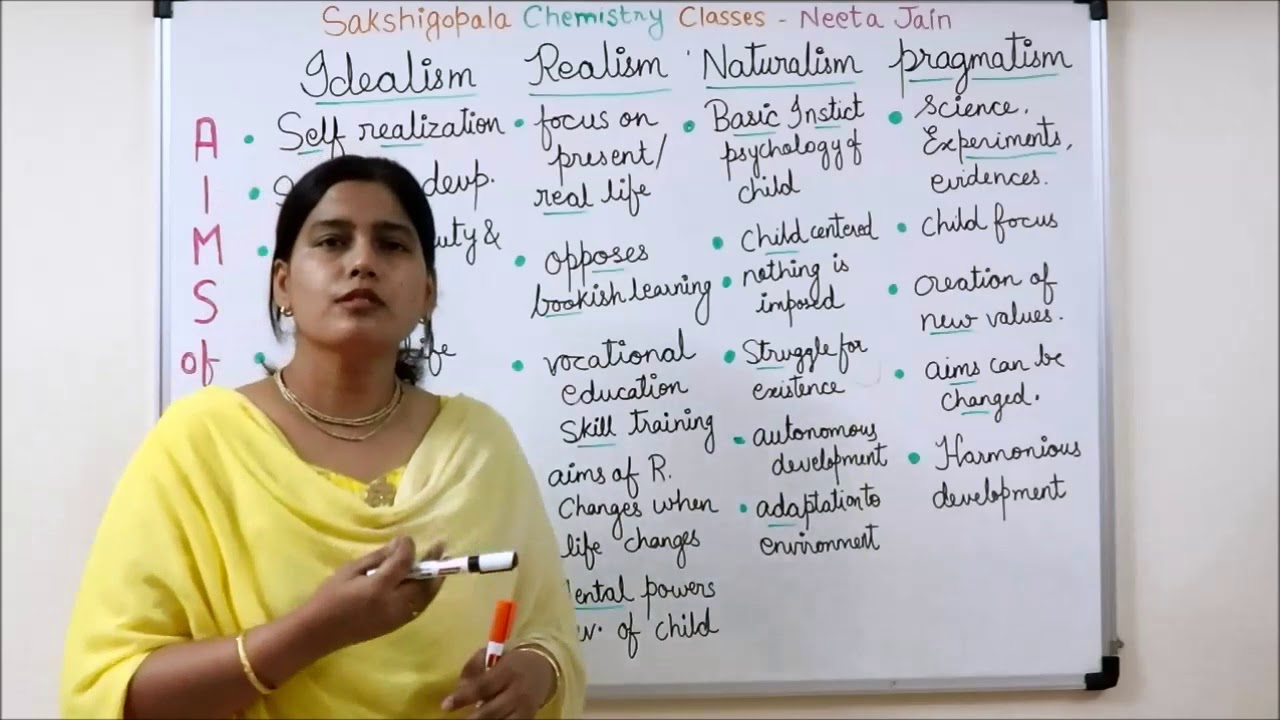 Sakshigopala Chemistry Classes - Neeta Jain
Idealism
Realism
Naturalism
pragmatism
AIMS
of
Self realization
devp.
&
focus on
present/
real life
opposes
bookish learning
vocational
education
skill training
aims of R.
changes when
life changes
powers
of child
Basic Instict
psychology of
child
child centered
nothing is
imposed
Struggle for
existence
autonomous
development
adaptation to
environment
Science,
Experiments,
evidences.
child focus
creation of
new values.
aims can be
changed.
Harmonious
development